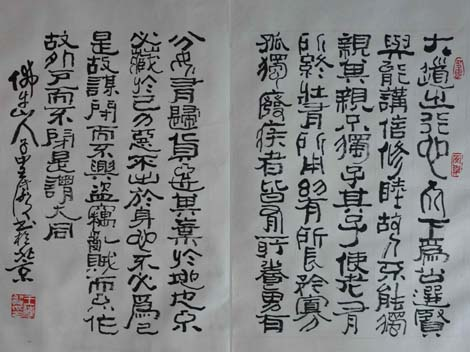 大道之行也天下為公選賢
與能講信修睦故人不能獨
親其親不獨子其子使老有
所終壯有所用幼有所長矜寡
孤獨廢疾者皆有所養男有
分女有歸貨惡其棄於地也不
必藏於己力惡不出於身也不必為己
是故謀閉而不興盜竊亂賊而不作
故外戶而不閉是謂大同
山人